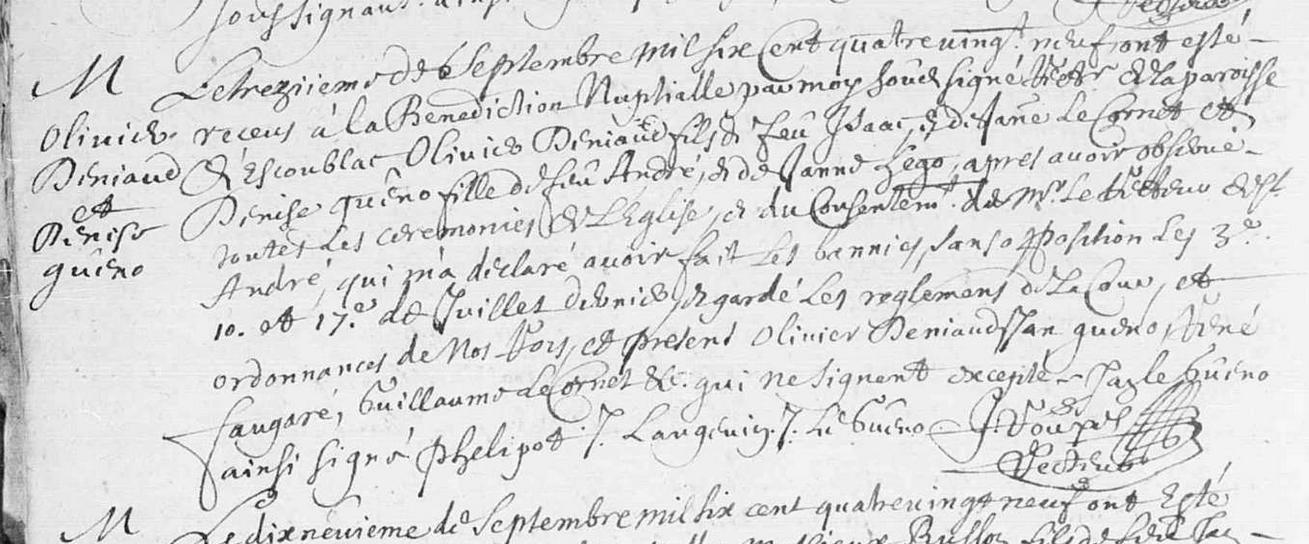 soussignant. ainsi
M
Olivier
Deniaud
et
Denise
guêno
Le treziieme de Septembre mil six Cent quatre vingt neuf ont esté
receus á la Benediction Nuptialle par moy soub signé Rectr de la paroisse
d'Escoublac Olivier Deniaud fils de feu Isaac, et de Jane Le Cornet et
Denise guêno fille de feu André, et de Janne Lego, apres avoir observé
toutes Les ceremonies de L'Eglise, et du Consentemt de Mr Le Recteur de St
André, qui m'a declaré avoir fait Les bannies, sans opposition Les 3e.
10. et 17.e de Juillet dernier, et gardé Les reglemens de La Cour, et
ordonnances de Nos Roys, et presens Olivier Deniaud, Jan guêno, René
Guillaume Le Cornet &c. qui ne signent excepté Le Guêno
ainsi signé Phelipot J. Langevin, J. Le Guêno
Recteur
M
Le dixneuvieme de Septembre mil six cent quatrevingt neuf ont Esté
fils de feu